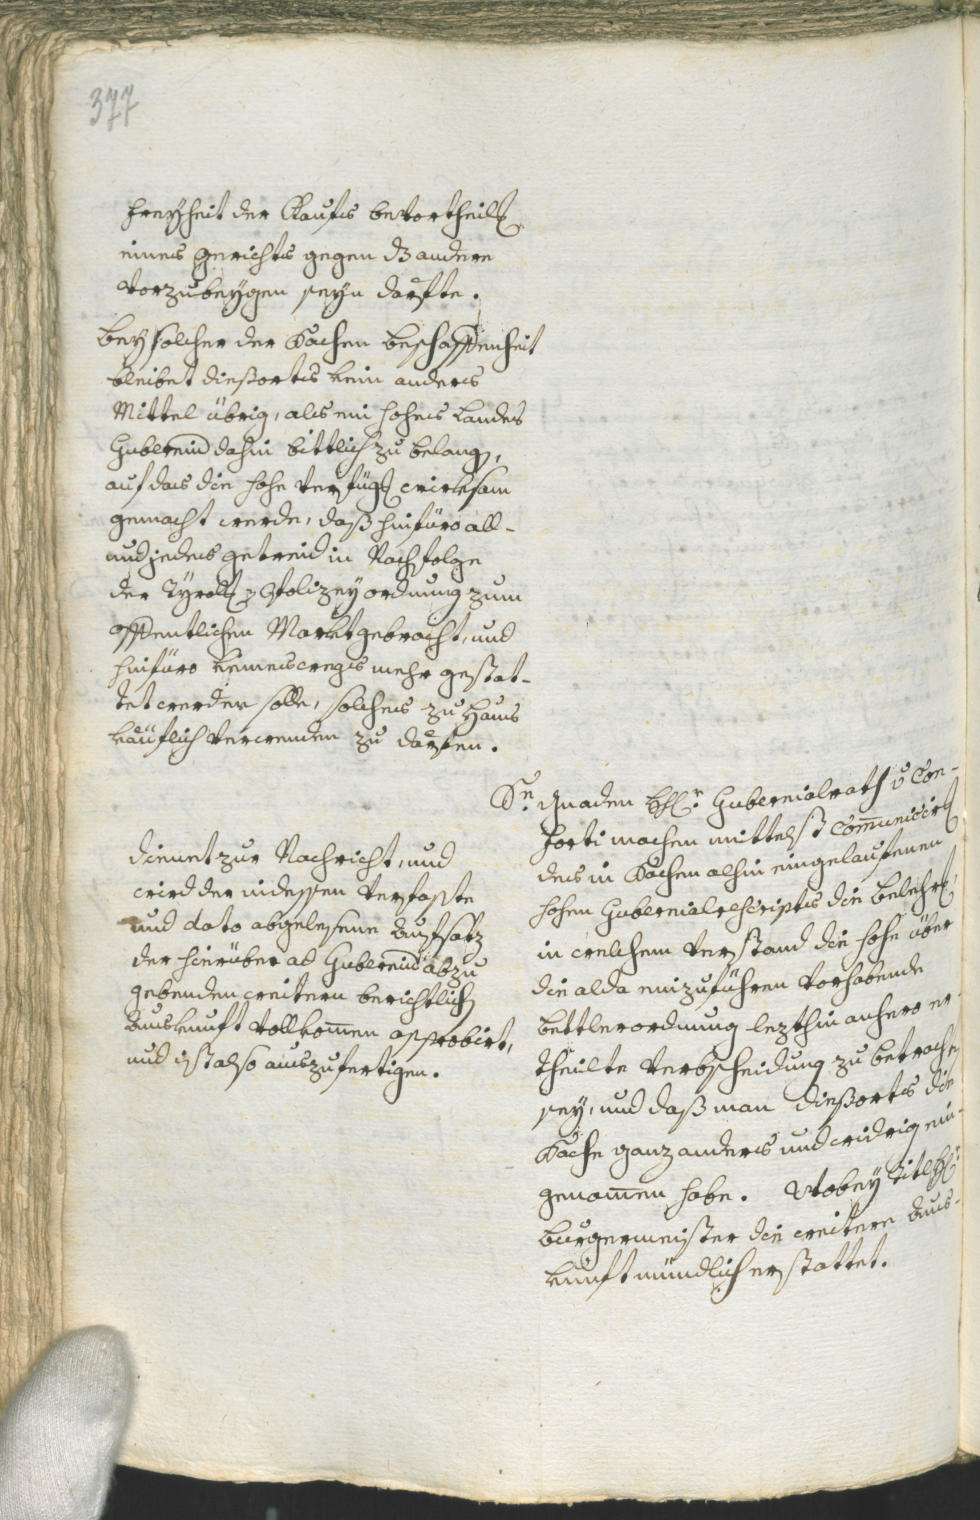 377
freyheit der Kaufs bevortheilg
eines gerichts gegen dz andere
vorzubeygen seyn darfte.
bey solcher der Sachen beschaffenheit
bleibet diessorts kein anders
Mittel übrig, als ein hohes Landes
Gubernium dahin bittlich zu belang,
auf das die hohe verfügg wirksam
gemacht werde, daß hinfüro all-
und jedes getreid in Nachfolge
der Tyroll: Polizeyordnung zum
offentlichen Markt gebracht, und
hinfüro keineswegs mehr gestat-
tet werden solle, solches zu Haus
käuflich verwenden zu darfen.
dienet zur Nachricht, und
wird der indessen verfasste
und dato abgelesene Aufsatz
der hierüber ad Gubernium abzu
gebenden weitern berichtlich
Auskunft vollkom̅en approbirt,
und ist also auszufertigen.
Sr. Gnaden H: Gubernialrath v Con-
forti machen mittelst Com̅unicirg
des in Sachen alhin eingelaufenen
hohen Gubernialrescripts die belehrg,
in welchem verstand die hohe über
die alda einzuführen vorhabende
bettlerordnung lezthin anhero er-
theilte verbscheidung zu betrachten
sey, und daß man diessorts die
Sache ganz anders und widrig ein-
genom̅en habe. Wobey titl H:
burgermeister die weitere Aus-
kunft mündlich erstattet.